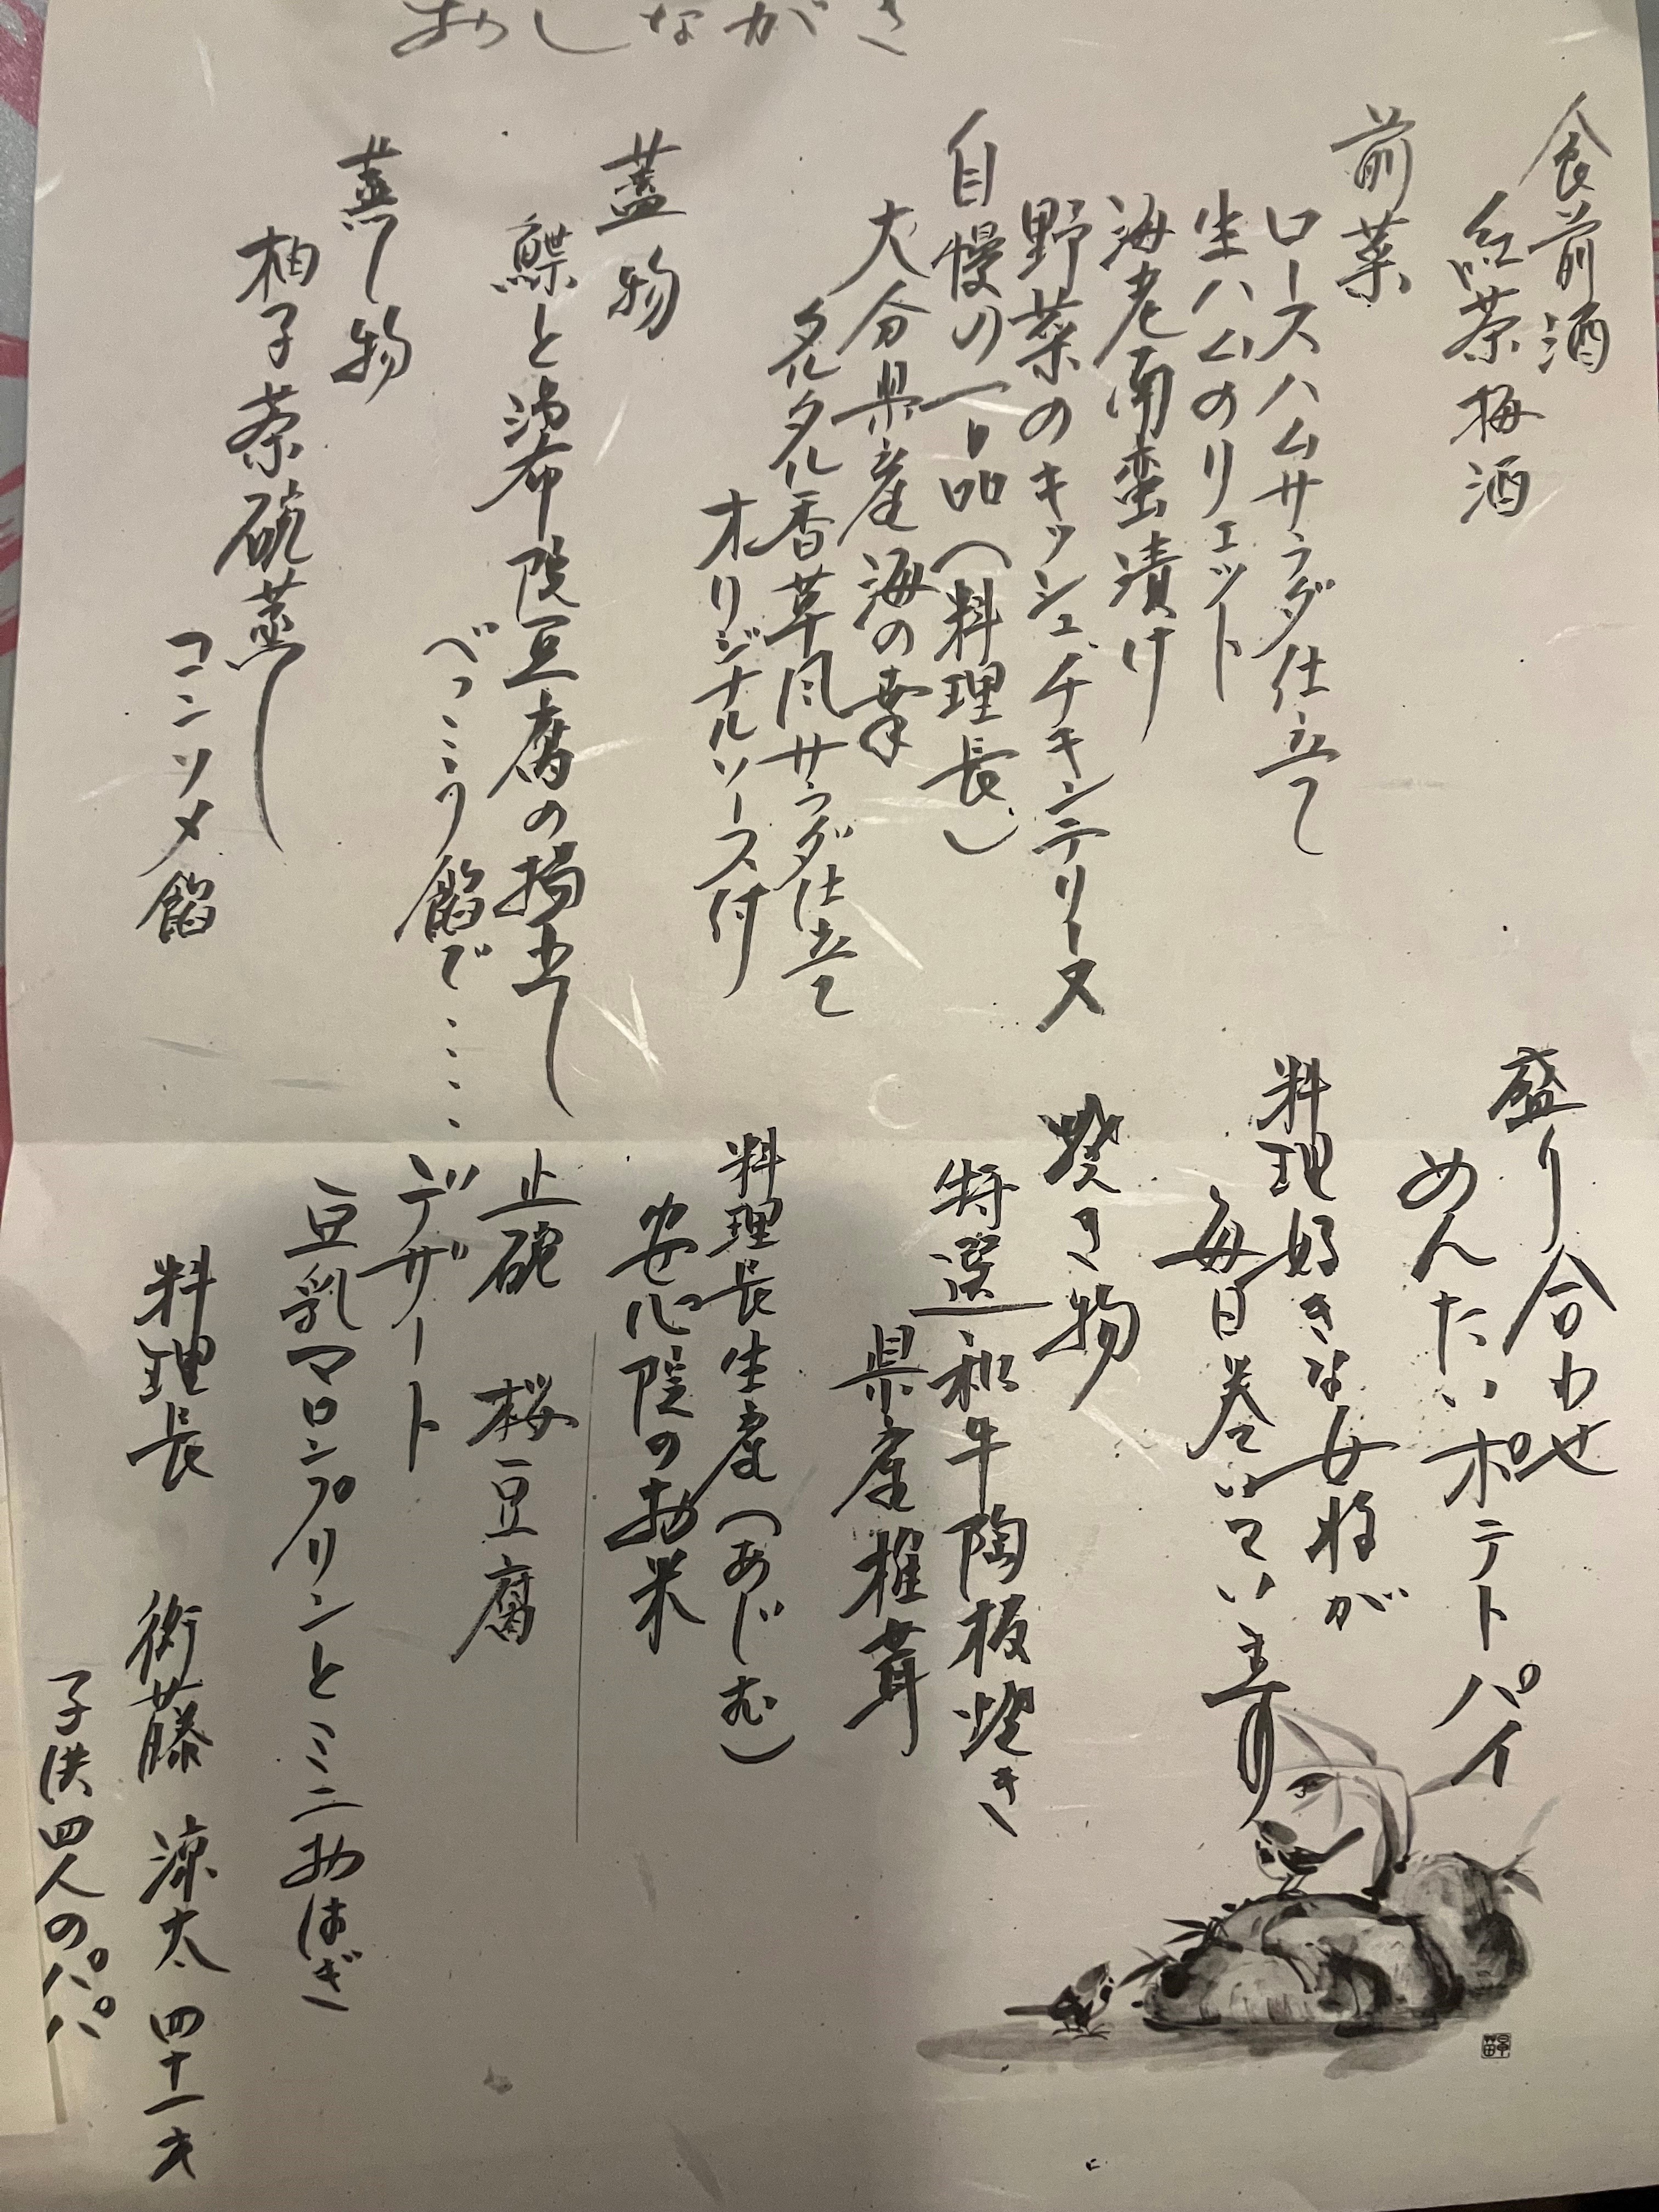 おしながき
食前酒
紅茶梅酒
前菜
ロースハムサラダ仕立て
生ハムのリエット
海老南蛮漬け
野菜のキッシュ、チキンテリーヌ
自慢の一品(料理長)
大分県産海の幸
タルタル香草風サラダ仕立て
オリジナルソース付
蓋物
鰈と湯布院豆腐の揚出し
べっこう餡で‥‥
蒸し物
柚子茶碗蒸し
コンソメ餡
盛り合わせ
めんたいポテトパイ
料理好きな女将が
毎日巻いています
焼き物
特選和牛陶板焼き
県産椎茸
料理長生産(あじむ)
安心院のお米
止碗 桜豆腐
デザート
豆乳マロンプリンとミニおはぎ
料理長 衛藤 涼太 四十一才
子供四人のパパ